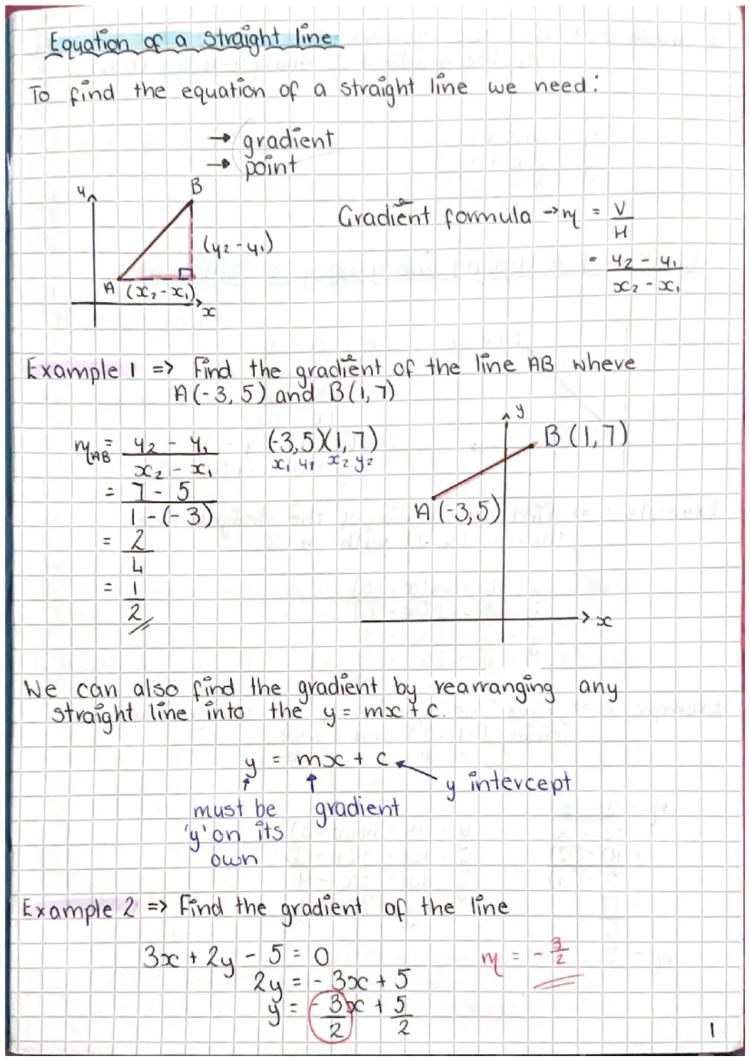 Equation of a straight line
To find the equation of a straight line we need:
→ gradient
→ point
y
B
(y₂ - y₁)
A (x₂ - x₁)
x
Gradient formula → m = V
H
= y₂ - y₁
x₂ - x₁
Example 1 => Find the gradient of the line AB where
A(-3, 5) and B(1, 7)
m_AB = y₂ - y₁
x₂ - x₁
(-3,5)(1,7)
x₁ y₁ x₂ y₂
= 7 - 5
1 - (-3)
= 2
4
= 1
2
y
B (1,7)
A (-3,5)
x
We can also find the gradient by rearranging any
straight line into the y = mx + c.
y = mx + c
y intercept
must be
'y' on its
own
gradient
Example 2 => Find the gradient of the line
3x + 2y - 5 = 0
2y = - 3x + 5
y = - 3x + 5
2 2
m = - 3/2
1